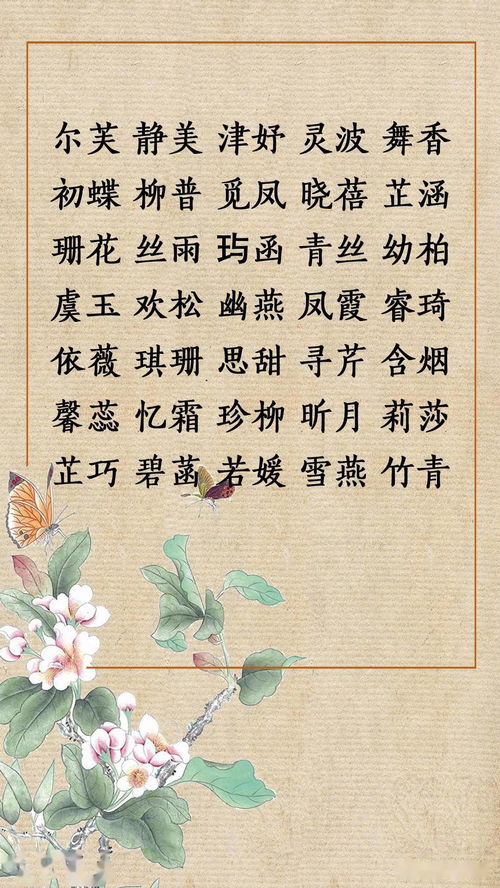 尔芙 静美 津妤 灵波 舞香
初蝶 柳普 觅凤 晓蓓 芷涵
珊花 丝雨 玙函 青丝 幼柏
虞玉 欢松 幽燕 凤霞 睿琦
依薇 琪珊 思甜 寻芹 含烟
馨蕊 忆霜 珍柳 昕月 莉莎
芷巧 碧菡 若媛 雪燕 竹青